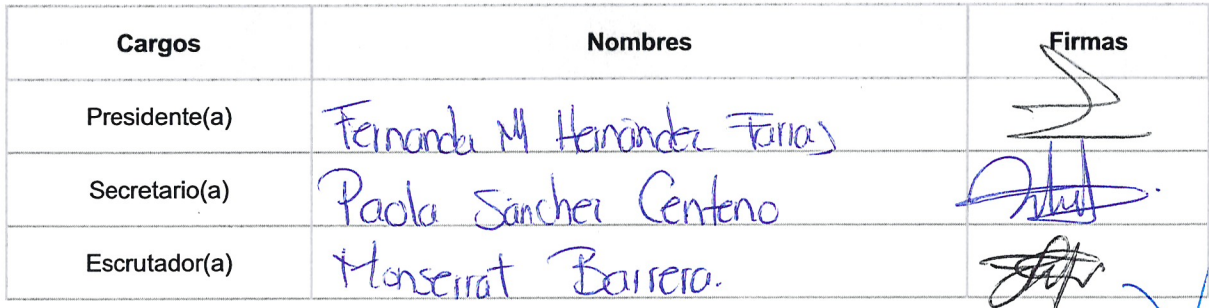 Cargos Nombres Firmas
Presidente(a) Fernanda M Hernández Farias
Secretario(a) Paola Sánchez Centeno
Escrutador(a) Monserrat Barrera.